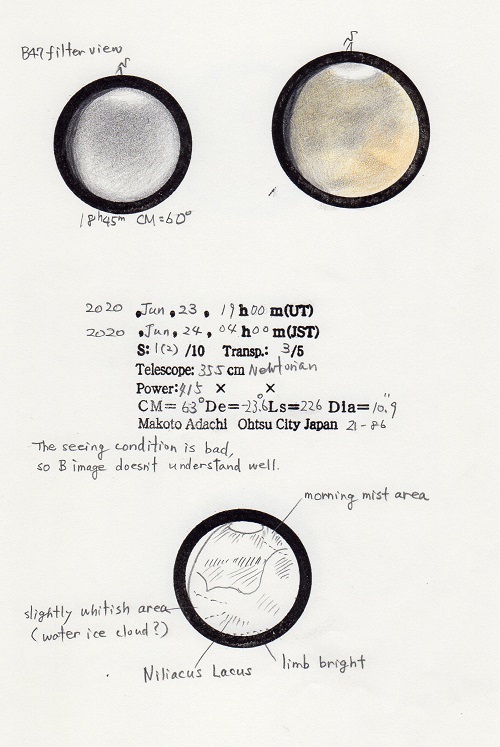 B47 filter view
N
N
18h45m CM=60°
2020 Jun, 23, 19h00m(UT)
2020 Jun, 24, 04h00m(JST)
S: 1(2) /10 Transp.: 3/5
Telescope: 355 cm Newtonian
Power: 415 × ×
CM= 63° De=-23.6 Ls=226 Dia=10.9"
Makoto Adachi Ohtsu City Japan 21-86
The seeing condition is bad,
so B image doesn't understand well.
morning mist area
slightly whitish area
(water ice cloud?)
Niliacus Lacus
limb bright